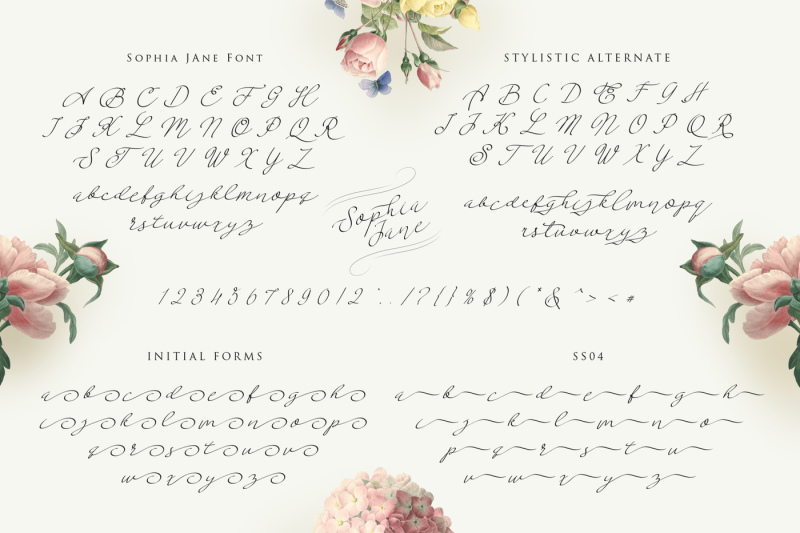 Sophia JAne Font
A B C D E F G H
I J K L M N O P Q R
S T U V W X Y Z
abcdefghijklmnopq
rstuvwxyz
STYLISTIC ALTERNATE
A B C D E F G H
I J K L M N O P Q R
S T U V W X Y Z
abcdefghijklmnopq
rstuvwxyz
Sophia
Jane
INITIAL FORMS
a b c d e f g h
i j k l m n o p
q r s t u v
w x y z
SS04
a b c d e f g h
i j k l m n o
p q r s t u
v w x y z